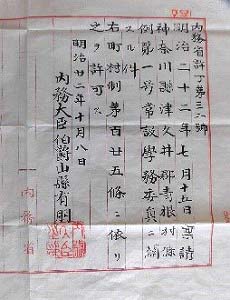 内務省許丁第三八號
明治二十二年七月十五日稟請
神奈川縣津久井郡青根村條
例第一号常設學務委員ニ關
スル件
右町村制第百廿五條ニ依リ
之ヲ許可ス
明治廿二年十月八日
内務大臣伯爵山縣有朋
内務省